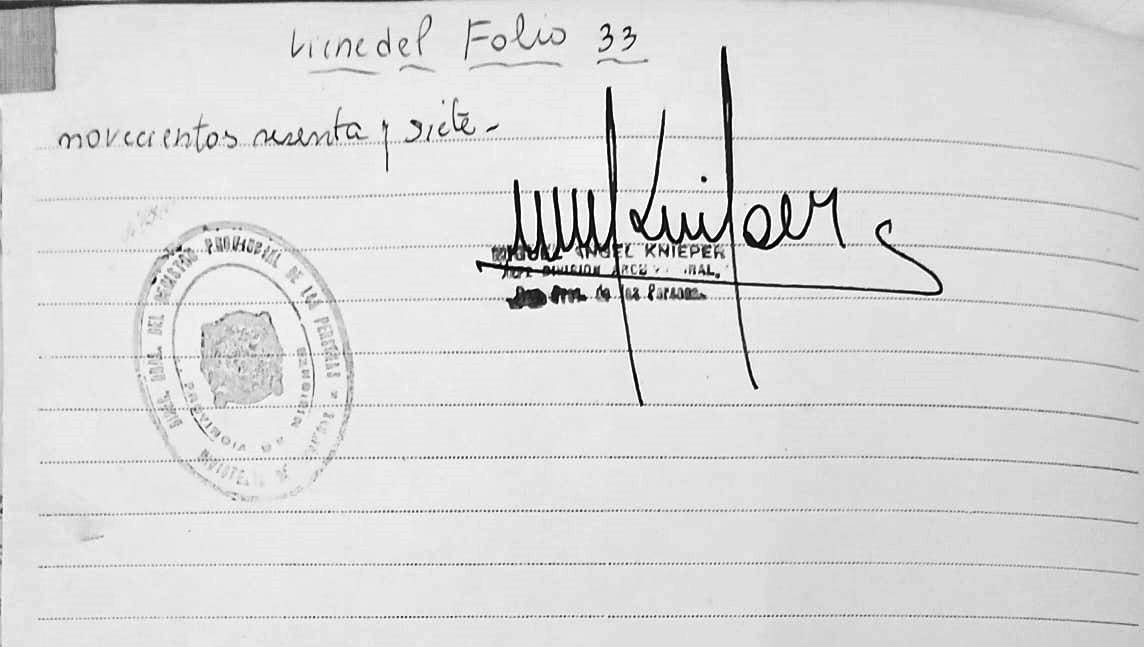 Viene del Folio 33
novecientos sesenta y siete -
MIGUEL ANGEL KNIEPER
JEFE DIVISION ARCH GRAL.
Prov. de las Personas
DIREC. GRAL. DEL REGISTRO PROVINCIAL DE LAS PERSONAS
MINISTERIO DE
PROVINCIA DE